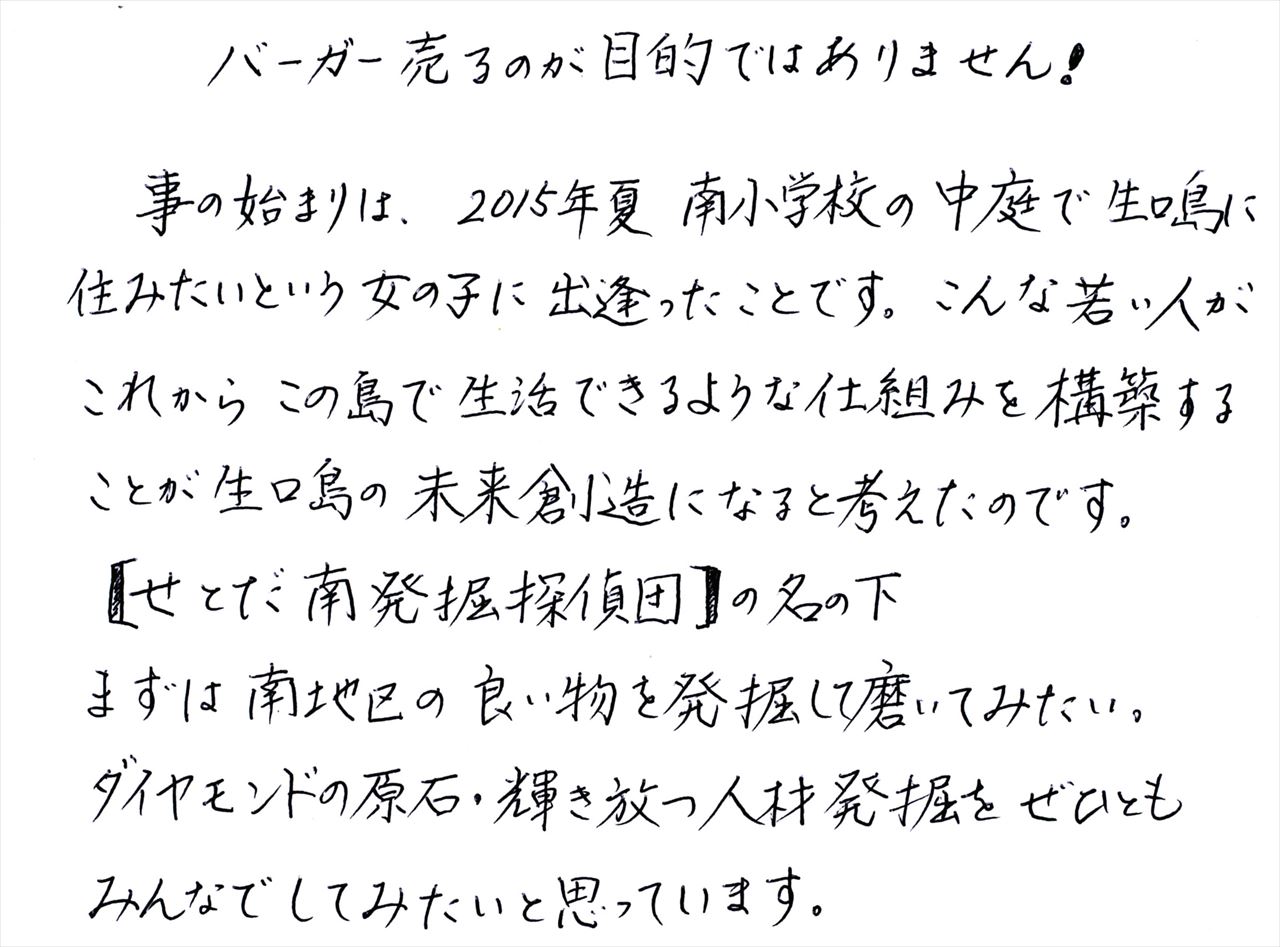 バーガー売るのが目的ではありません!
事の始まりは、2015年夏 南小学校の中庭で生口島に
住みたいという女の子に出逢ったことです。こんな若い人が
これからこの島で生活できるような仕組みを構築する
ことが生口島の未来創造になると考えたのです。
【せとだ南発掘探偵団】の名の下
まずは南地区の良い物を発掘して磨いてみたい。
ダイヤモンドの原石・輝き放つ人材発掘をぜひとも
みんなでしてみたいと思っています。